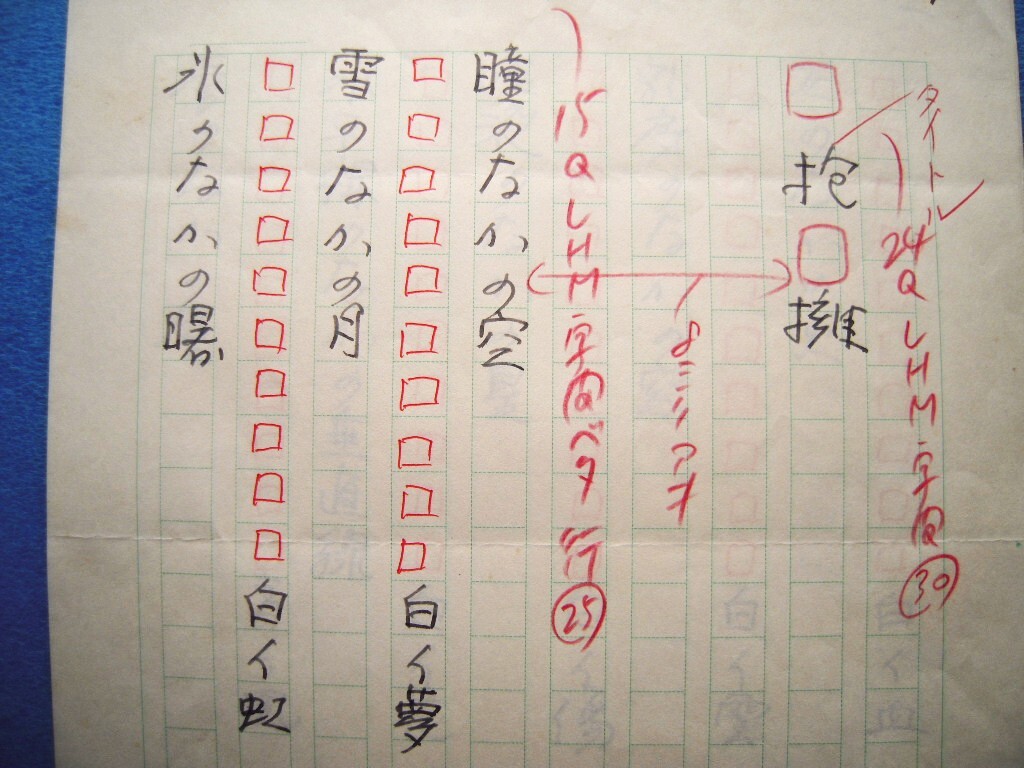 タイトル
24Q LHM 字間㉚
□抱□擁
8ミリアキ
15Q LHM 字間ベタ 行㉕
瞳のなかの空
□□□□□□□□□□白イ夢
雪のなかの月
□□□□□□□□□□白イ虹
氷のなかの曙